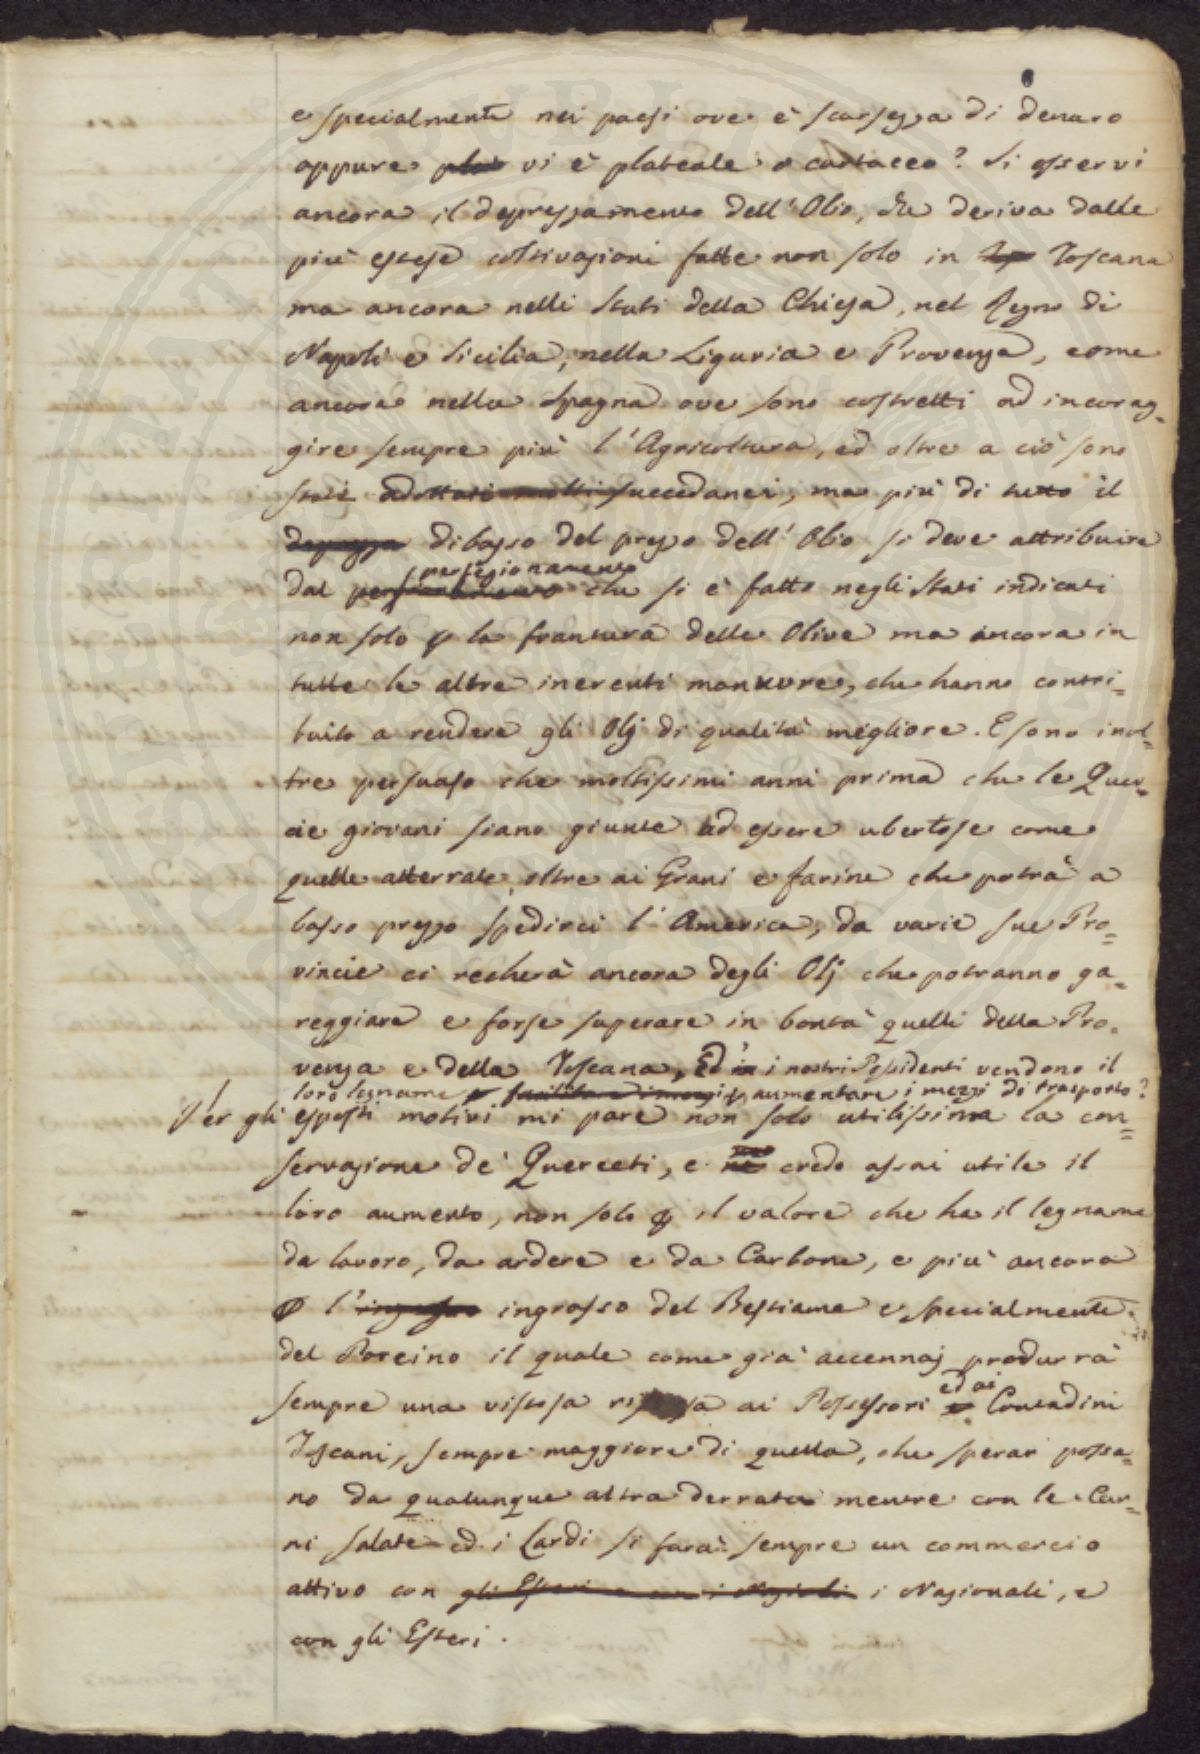 e specialmente nei paesi ove è scarsezza di denaro
oppure vi è plateale o cartaceo? Si osservi
ancora il deprezzamento dell'Olio, che deriva dalle
più estese coltivazioni fatte non solo in Toscana
ma ancora nelli Stati della Chiesa, nel Regno di
Napoli e Sicilia, nella Liguria e Provenza, come
ancora nella Spagna ove sono costretti ad incorag=
gire sempre più l'Agricoltura, ed oltre a ciò sono
stati adottati molti succedanei, ma più di tutto il
dibasso del prezzo dell'Olio si deve attribuire
perfezionamento
dal che si è fatto negli Stati indicati
non solo p la frantura delle Olive ma ancora in
tutte le altre inerenti manuvre, che hanno contri=
buito a rendere gli Olj di qualità migliore. E sono inol=
tre persuaso che moltissimi anni prima che le Quer=
cie giovani siano giunte ad essere ubertose come
quelle atterrate, oltre ai Grani e farine che potrà a
basso prezzo spedirci l'America, da varie sue Pro=
vincie ci recherà ancora degli Olj che potranno ga=
reggiare e forse superare in bontà quelli della Pro=
venza e della Toscana, Ed i nostri Possidenti vendono il
loro legname p aumentare i mezzi di trasporto?
Per gli esposti motivi mi pare non solo utilissima la con=
servazione de' Querceti, e credo assai utile il
loro aumento, non solo p il valore che ha il legname
da lavoro, da ardere e da Carbone, e più ancora
p l' ingrasso del Bestiame e specialmente
del Porcino il quale come già accennaj produrrà
sempre una vistosa ai Possessori ed ai Contadini
Toscani, sempre maggiore di quella, che sperar possa=
no da qualunque altra derrata mentre con le Car=
ni salate ed i Lardi si farà sempre un commercio
attivo con gli Esteri i Nazionali, e
con gli Esteri.